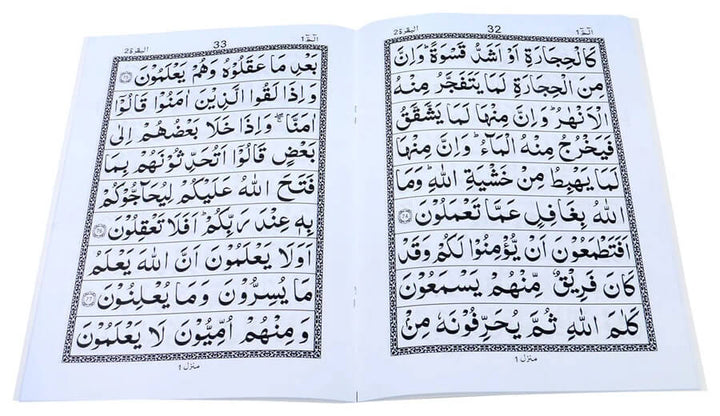 الٓمّٓ ١
32
البقرة ٢
كَالْحِجَارَةِ اَوْ اَشَدُّ قَسْوَةً ؕ وَاِنَّ
مِنَ الْحِجَارَةِ لَمَا يَتَفَجَّرُ مِنْهُ
الْاَنْهٰرُ ؕ وَاِنَّ مِنْهَا لَمَا يَشَّقَّقُ
فَيَخْرُجُ مِنْهُ الْمَآءُ ؕ وَاِنَّ مِنْهَا
لَمَا يَهْبِطُ مِنْ خَشْيَةِ اللّٰهِ ؕ وَمَا
اللّٰهُ بِغَافِلٍ عَمَّا تَعْمَلُوْنَ
اَفَتَطْمَعُوْنَ اَنْ يُّؤْمِنُوْا لَكُمْ وَقَدْ
كَانَ فَرِيْقٌ مِّنْهُمْ يَسْمَعُوْنَ
كَلٰمَ اللّٰهِ ثُمَّ يُحَرِّفُوْنَهٗ مِنْۢ
منزل ١
الٓمّٓ ١
33
البقرة ٢
بَعْدِ مَا عَقَلُوْهُ وَهُمْ يَعْلَمُوْنَ
وَاِذَا لَقُوا الَّذِيْنَ اٰمَنُوْا قَالُوْٓا
اٰمَنَّا ۖ وَاِذَا خَلَا بَعْضُهُمْ اِلٰى
بَعْضٍ قَالُوْٓا اَتُحَدِّثُوْنَهُمْ بِمَا
فَتَحَ اللّٰهُ عَلَيْكُمْ لِيُحَآجُّوْكُمْ
بِهٖ عِنْدَ رَبِّكُمْ ؕ اَفَلَا تَعْقِلُوْنَ
اَوَلَا يَعْلَمُوْنَ اَنَّ اللّٰهَ يَعْلَمُ
مَا يُسِرُّوْنَ وَمَا يُعْلِنُوْنَ
وَمِنْهُمْ اُمِّيُّوْنَ لَا يَعْلَمُوْنَ
منزل ١